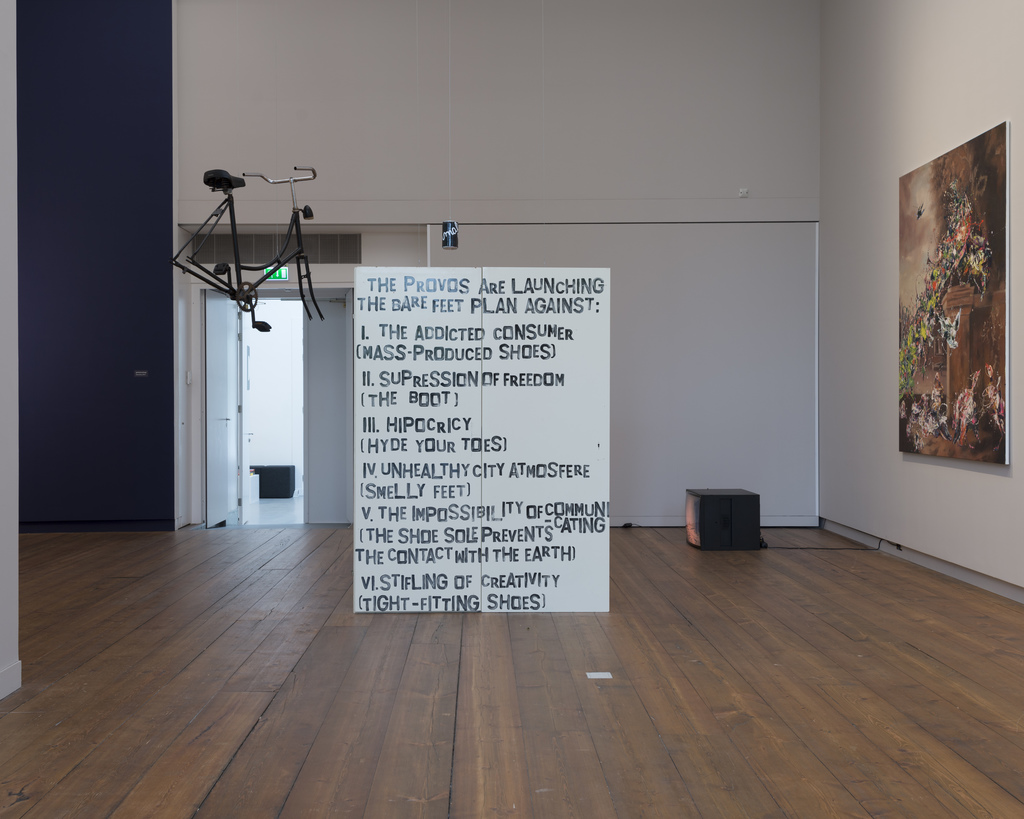 THE PROVOS ARE LAUNCHING
THE BARE FEET PLAN AGAINST:
I. THE ADDICTED CONSUMER
(MASS-PRODUCED SHOES)
II. SUPRESSION OF FREEDOM
(THE BOOT)
III. HIPOCRICY
(HYDE YOUR TOES)
IV. UNHEALTHY CITY ATMOSFERE
(SMELLY FEET)
V. THE IMPOSSIBILITY OF COMMUNI
-CATING
(THE SHOE SOLE PREVENTS
THE CONTACT WITH THE EARTH)
VI. STIFLING OF CREATIVITY
(TIGHT-FITTING SHOES)